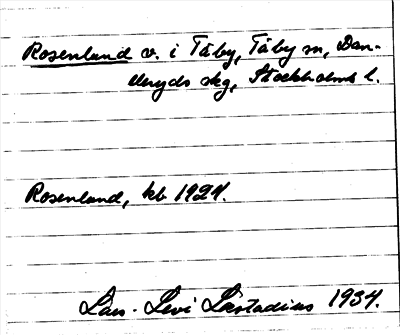 Rosenlund v. i Täby, Täby sn, Dan-
deryds skg, Stockholms l.
Rosenlund, kb 1927.
Lars-Levi Læstadius 1934.